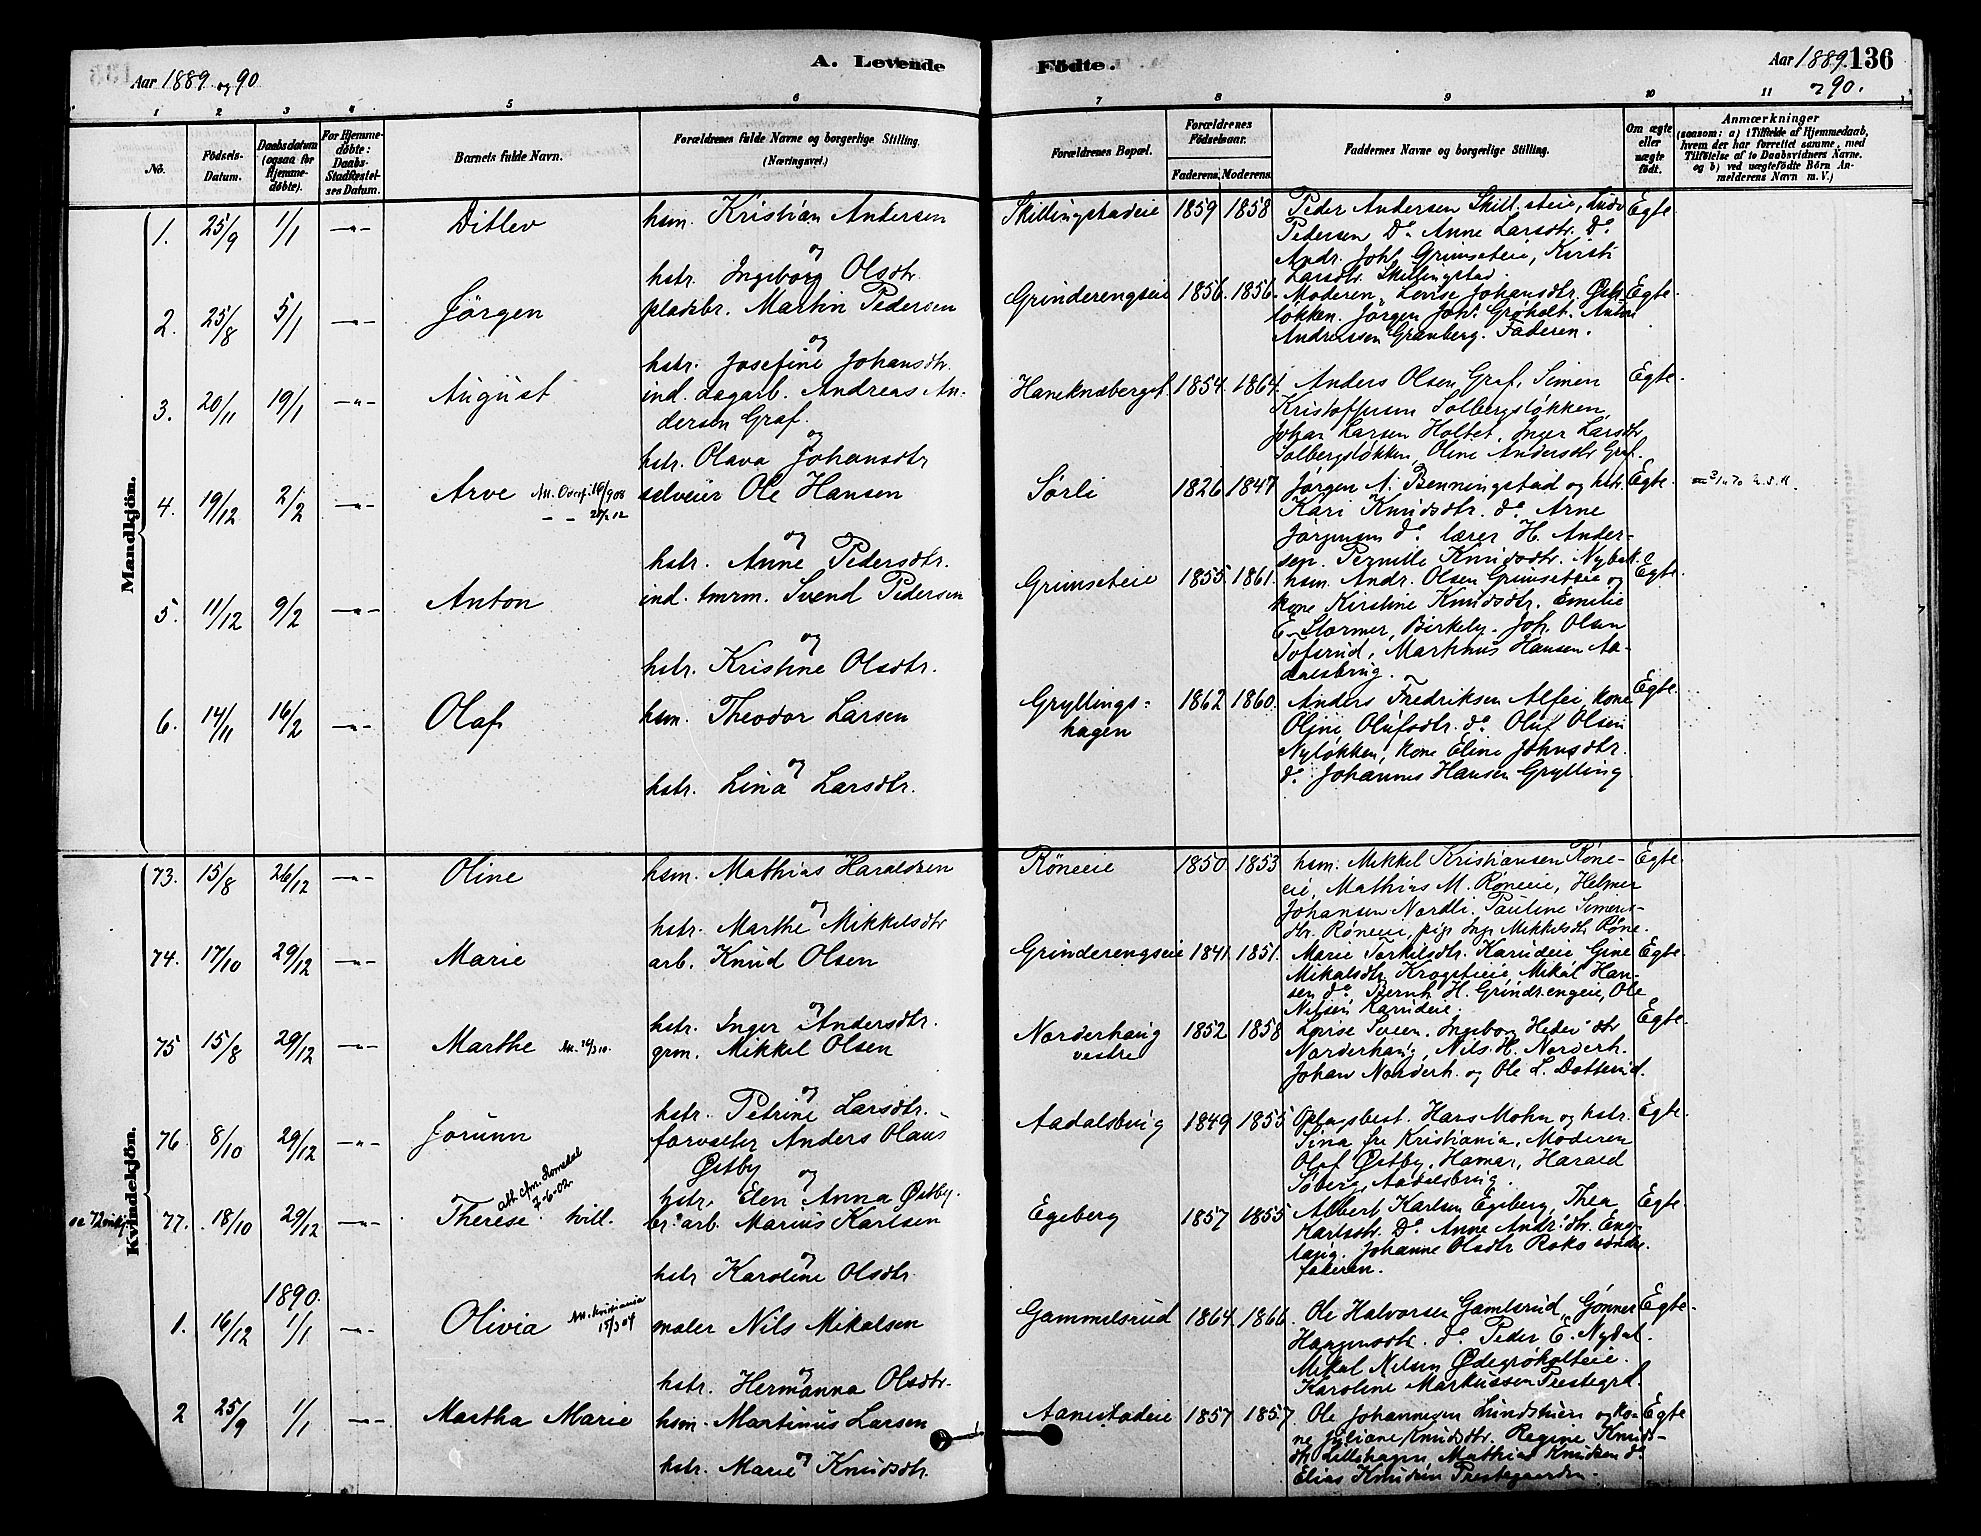 Aar 1889 og 90
A. Levende
Fødte.
Aar 1889
136
90.
1 2 3 4 5 6 7 8 9 10 11
No.
Fødsels-Datum.
Daabsdatum (ogsaa for Hjemmedøbte).
For Hjemmedøbte: Daabs-Stadfæstelses Datum.
Barnets fulde Navn.
Forældrenes fulde Navne og borgerlige Stilling. (Næringsvei.)
Forældrenes Bopæl.
Forældrenes Fødselsaar.
Faderens. Moderens.
Faddernes Navne og borgerlige Stilling.
Om ægte eller uægte født.
Anmærkninger
(saasom: a) i Tilfælde af Hjemmedaab, hvem der har forrettet samme, med Tilføielse af to Daabsvidners Navne. og b) ved uægtefødte Børn Anmelderens Navn m. V.)
Mandkjön.
1. 25/9 1/1 -"- Ditlev hsm. Kristian Andersen
og
hstr. Ingeborg Olsdtr.
Skillingstadeie 1859 1858 Peder Andersen Skill.steie,
Pedersen Do. Anne Larsdtr. Do.
Andr. Joh. Grimseteie, Kirsti
Larsdtr. Skillingstad.
Egte
2. 25/8 5/1 -"- Jörgen pladsbr. Martin Pedersen
og
hstr. Josefine Johansdtr.
Grinderengseie 1856. 1856. Moderen, Lovise Johansdtr. Øst-
løkken. Jørgen Joh. Grøholt. Anton
Andreassen Granberg. Faderen.
Egte
3. 20/11 19/1 -"- August ind. dagarb. Andreas An-
dersen Graf.
og
hstr. Olava Johansdtr
Haneknæberget 1854. 1864. Anders Olsen Graf, Simen
Kristoffersen Solbergsløkken,
Johan Larsen Holtet, Inger Larsdtr
Solbergsløkken, Oline Andersdtr Graf.
Egte.
4. 19/12 2/2 -"- Arve selveier Ole Hansen
og
hstr. Anne Pedersdtr.
Sørli 1826 1847 Jørgen A. Benningstad og hstr.
Kari Knudsdtr. do. Arne
Jørgensen do. lærer H. Ander-
sen. Pernille Knudsdtr. Nybak.
Egte.
5. 11/12 9/2 -"- Anton ind. tmrm. Svend Pedersen
og
hstr. Kristine Olsdtr.
Grimseteie 1855. 1861. hsm. Andr. Olsen Grimseteie og
kone Kirstine Knudsdtr. Emilie
E. Stormer, Birkely. Joh. Olsen
Tofsrud, Marthius Hansen Aa-
dalsbrug.
Egte.
6. 14/11 16/2 -"- Olaf hsm. Theodor Larsen
og
hstr. Lina Larsdtr.
Gryllings-
hagen
1862 1860. Anders Fredriksen Alfei, kone
Oline Olufsdtr. do. Oluf Olsen
Nyløkken, kone Eline Johnsdtr.
do. Johannes Hansen Grylling
Egte.
Kvindekjön.
73. 15/8 26/12 -"- Oline hsm. Mathias Haraldsen
og
hstr. Marthe Mikkelsdtr
Røneeie 1850. 1853 hsm. Mikkel Kristiansen Røne-
eie, Mathias M. Røneeie, Helmer
Johansen Nordli. Pauline Simens-
dtr. Røneeie, pige Inge Mikkelsdtr. Røne.
Egte.
74. 17/10 29/12 -"- Marie arb. Knud Olsen
og
hstr. Inger Andersdtr.
Grinderengseie 1841. 1851. Marie Torkilsdtr. Karudeie, Gine
Mikalsdtr. Krogsteie, Mikal Han-
sen do, Bernh. H. Grindrengeie, Ole
Nilsen Karudeie.
Egte.
75 15/8 29/12 -"- Marthe grm. Mikkel Olsen
og
hstr. Petrine Larsdtr.
Norderhaug
vestre
1852 1858 Lovise Sveen. Ingeborg
Norderhaug, Nils H. Norderh.
Johan Norderh. og Ole L. Dotterud.
Egte.
76 8/10 29/12 -"- Jorunn forvalter Anders Olaus
Østby og
hstr. Elen Anna Østby.
Aadalsbrug 1849 1855 Oplagsbest. Hans Mohn og hstr.
Tina fra Kristiania, Moderen
Olaf Østby, Hamar, Harald
Søberg, Aadalsbrug.
Egte.
att. cfm. Romedal
7-6-02
77. 18/10 29/12 -"- Therese tvill. br. arb. Marius Karlsen
og
hstr Karoline Olsdtr.
Egeberg 1857 1855 Albert Karlsen Egeberg, Thea
Karlsdtr. Do. Anne Andr.dtr. Eng-
laug. Johanne Olsdtr Roko søndre
faderen.
Egte.
1890.
1. 16/12 1/1 -"- Olivia Att. Kristiania
15/3 04
maler Nils Mikalsen
og
hstr. Hermanna Olsdtr.
Gammelsrud 1864. 1866. Ole Halvorsen Gamlsrud, Gønner
Haagensdtr. do. Peder E. Nydal.
Mikal Nilsen Ødegrøholteie.
Karoline Markussen Prestegrd.
Egte.
2 25/9 1/1 -"- Martha Marie hsm. Martinus Larsen
og
hstr. Marie Knudsdtr.
Aanestadeie 1857 1857. Ole Johannesen Lundstuen og ko-
ne Juliane Knudsdtr. Regine Knuds-
dtr. Lillehagen, Mathias Knudsen do
Elias Knudsen Prestegaarden.
Egte